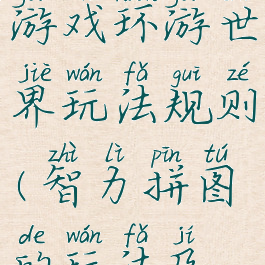 游戏环游世
jiè wán fǎ guī zé
界玩法规则
zhì lì pīn tú
(智力拼图
de wán fǎ jí
的玩法及